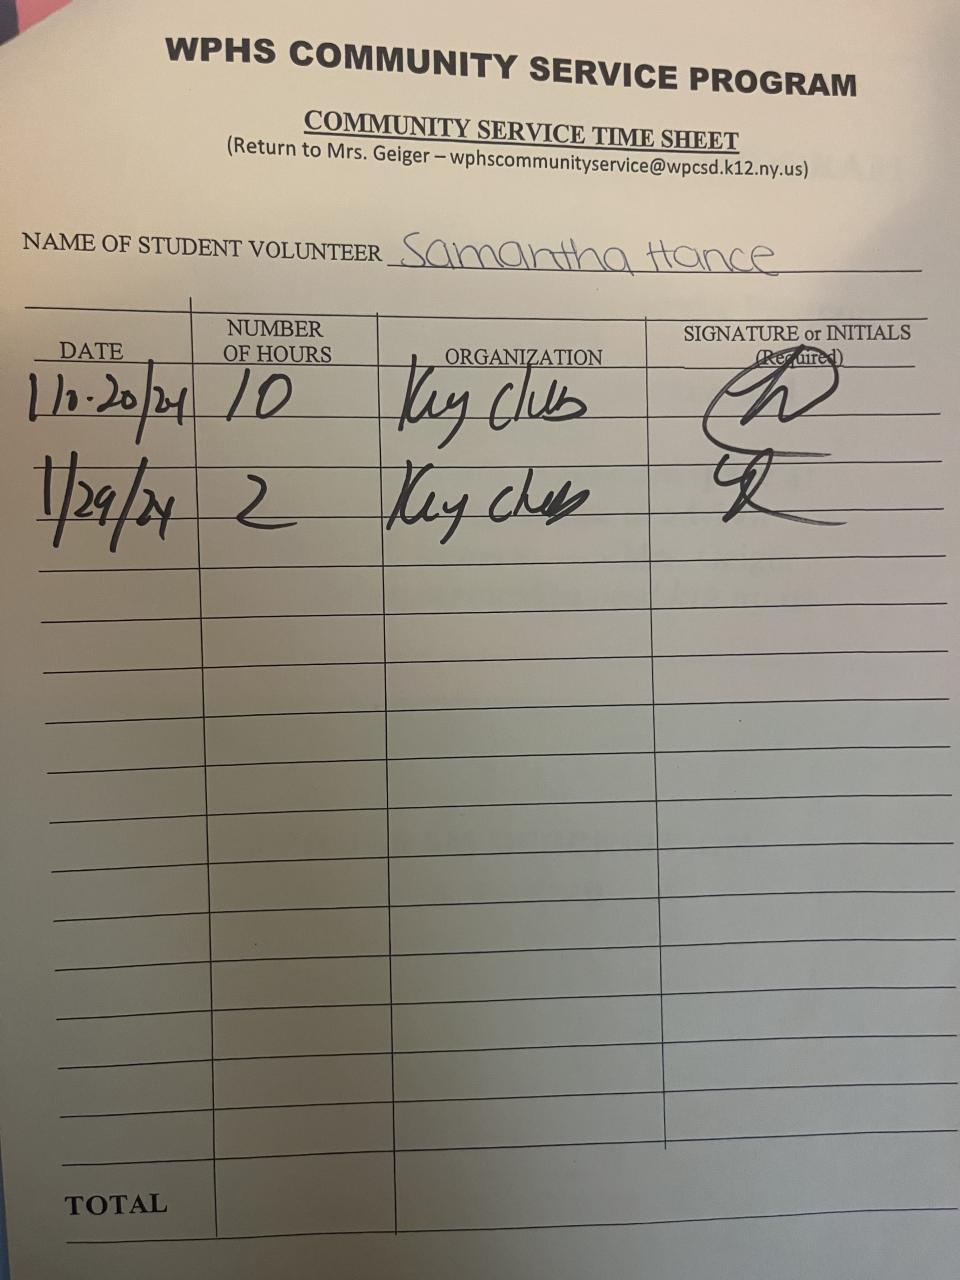 WPHS COMMUNITY SERVICE PROGRAM
COMMUNITY SERVICE TIME SHEET
(Return to Mrs. Geiger – wphscommunityservice@wpcsd.k12.ny.us)
NAME OF STUDENT VOLUNTEER Samantha Hance
DATE NUMBER OF HOURS ORGANIZATION SIGNATURE or INITIALS (Required)
10 Key club
1/29/24 2 Key club
TOTAL